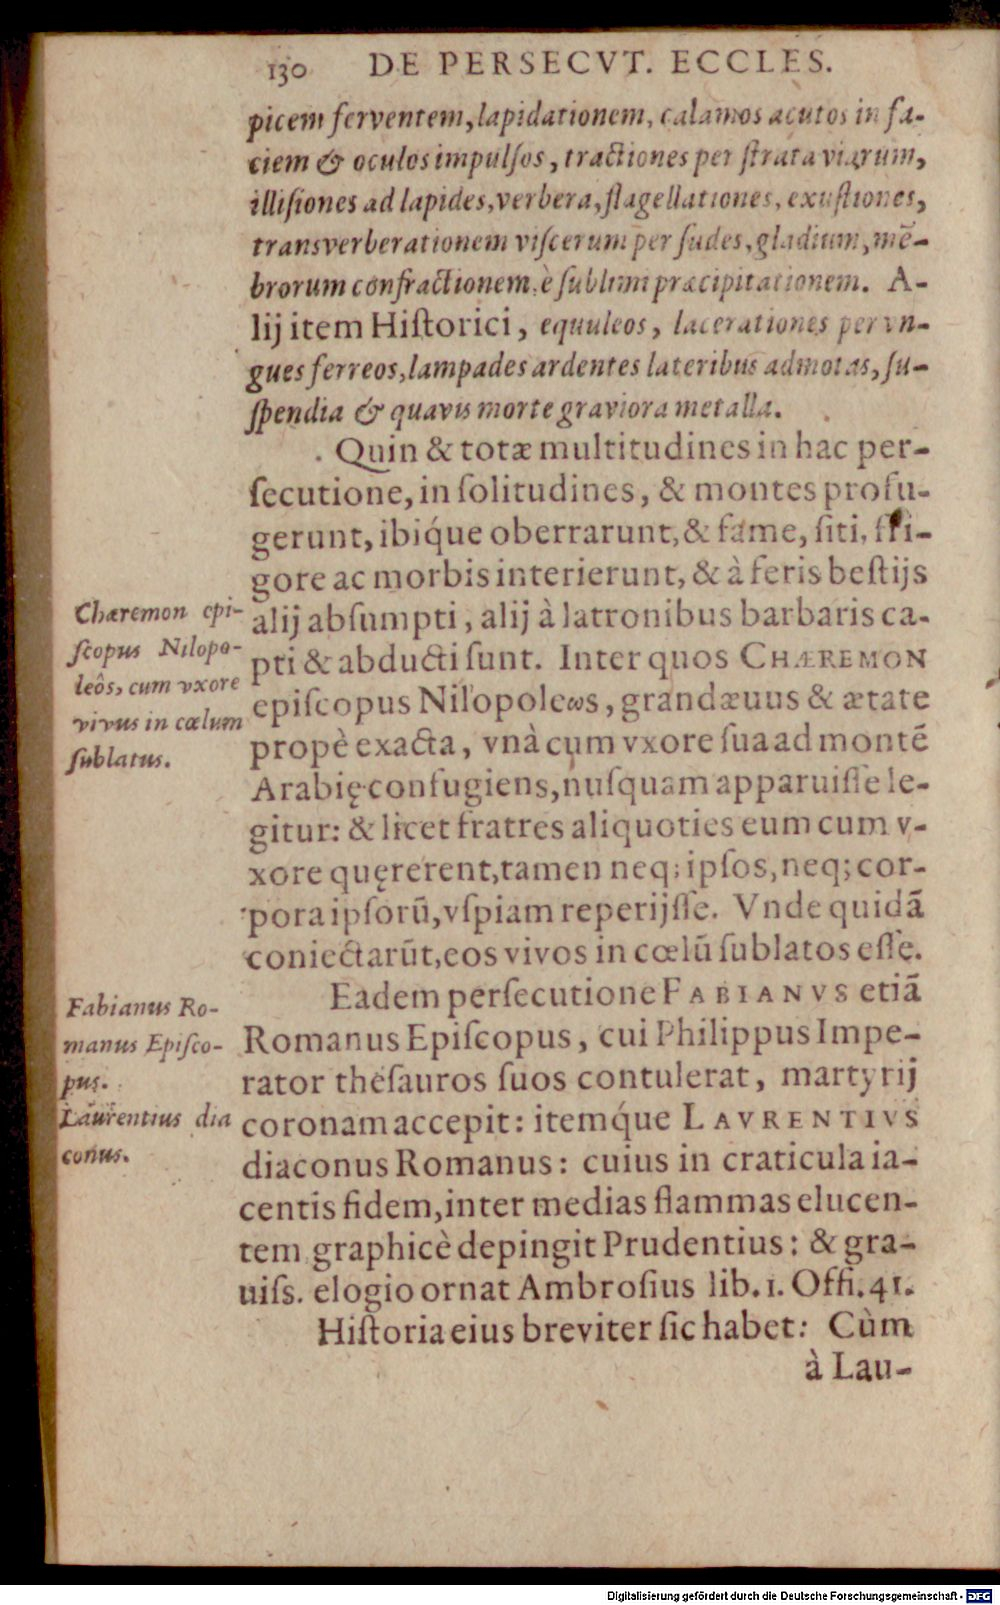 130 DE PERSECVT. ECCLES.
picem ferventem, lapidationem, calamos acutos in fa-
ciem & oculos impulſos, tractiones per ſtrata viarum,
illiſiones ad lapides, verbera, flagellationes, exuſtiones,
transverberationem viſcerum per ſudes, gladium, mē-
brorum confractionem, è ſublimi præcipitationem. A-
lij item Hiſtorici, equuleos, lacerationes per vn-
gues ferreos, lampades ardentes lateribus admotas, ſu-
ſpendia & quavis morte graviora metalla.
Quin & totæ multitudines in hac per-
ſecutione, in ſolitudines, & montes profu-
gerunt, ibíque oberrarunt, & fame, ſiti, fri-
gore ac morbis interierunt, & à feris beſtijs
alij abſumpti, alij à latronibus barbaris ca-
pti & abducti ſunt. Inter quos CHÆREMON
epiſcopus Nilopoleωs, grandæuus & ætate
propè exacta, vnà cum vxore ſua ad montē
Arabię confugiens, nuſquam apparuiſſe le-
gitur: & licet fratres aliquoties eum cum v-
xore quęrerent, tamen neq; ipſos, neq; cor-
pora ipſorū, vſpiam reperijſſe. Vnde quidā
coniectarūt, eos vivos in cœlū ſublatos eſſe.
Eadem perſecutione FABIANVS etiā
Romanus Epiſcopus, cui Philippus Impe-
rator theſauros ſuos contulerat, martyrij
coronam accepit: itemque LAVRENTIVS
diaconus Romanus: cuius in craticula ia-
centis fidem, inter medias flammas elucen-
tem graphicè depingit Prudentius: & gra-
uiſs. elogio ornat Ambroſius lib. 1. Offi. 41.
Hiſtoria eius breviter ſic habet: Cùm
à Lau-
Chæremon epi-
ſcopus Nilopo-
leôs, cum vxore
vivus in cœlum
ſublatus.
Fabianus Ro-
manus Epiſco-
pus.
Laurentius dia
conus.
Digitalisierung gefördert durch die Deutsche Forschungsgemeinschaft - DFG